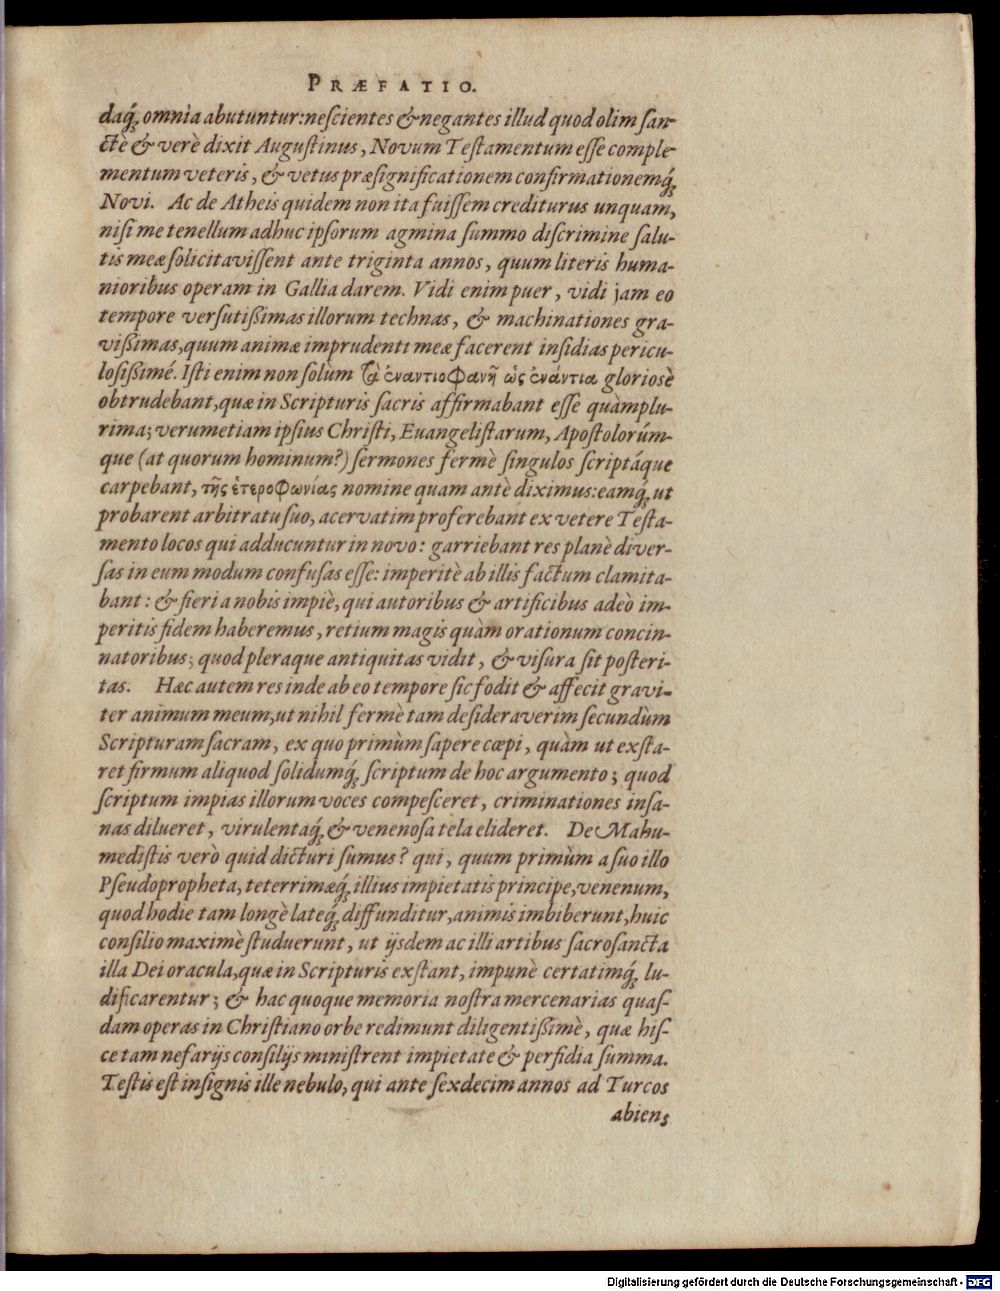 PRÆFATIO.
daq́; omnia abutuntur: nescientes & negantes illud quod olim san-
ctè & verè dixit Augustinus, Novum Testamentum esse comple-
mentum veteris, & vetus præsignificationem confirmationemq́;
Novi. Ac de Atheis quidem non ita fuissem crediturus unquam,
nisi me tenellum adhuc ipsorum agmina summo discrimine salu-
tis meæ solicitavissent ante triginta annos, quum literis huma-
nioribus operam in Gallia darem. Vidi enim puer, vidi jam eo
tempore versutißimas illorum technas, & machinationes gra-
vißimas, quum animæ imprudenti meæ facerent insidias pericu-
losißimé. Isti enim non solùm τὰ ἐναντιοφανῆ ὡς ἐνάντια gloriosè
obtrudebant, quæ in Scripturis sacris affirmabant esse quàmplu-
rima; verumetiam ipsius Christi, Euangelistarum, Apostolorúm-
que (at quorum hominum?) sermones fermè singulos scriptáque
carpebant, τῆς ἑτεροφωνίας nomine quam antè diximus: eamq́; ut
probarent arbitratu suo, acervatim proferebant ex vetere Testa-
mento locos qui adducuntur in novo: garriebant res planè diver-
sas in eum modum confusas esse: imperitè ab illis factum clamita-
bant: & fieri a nobis impiè, qui autoribus & artificibus adeò im-
peritis fidem haberemus, retium magis quàm orationum concin-
natoribus; quod pleraque antiquitas vidit, & visura sit posteri-
tas. Hæc autem res inde ab eo tempore sic fodit & affecit gravi-
ter animum meum, ut nihil fermè tam desideraverim secundùm
Scripturam sacram, ex quo primùm sapere cœpi, quàm ut exsta-
ret firmum aliquod solidumq́; scriptum de hoc argumento; quod
scriptum impias illorum voces compesceret, criminationes insa-
nas dilueret, virulentaq́; & venenosa tela elideret. De Mahu-
medistis verò quid dicturi sumus? qui, quum primùm a suo illo
Pseudopropheta, teterrimæq́; illius impietatis principe, venenum,
quod hodie tam longè lateq́; diffunditur, animis imbiberunt, huic
consilio maximè studuerunt, ut ijsdem ac illi artibus sacrosancta
illa Dei oracula, quæ in Scripturis exstant, impunè certatimq́; lu-
dificarentur; & hac quoque memoria nostra mercenarias quas-
dam operas in Christiano orbe redimunt diligentißimè, quæ his-
ce tam nefarijs consilijs ministrent impietate & perfidia summa.
Testis est insignis ille nebulo, qui ante sexdecim annos ad Turcos
abiens
Digitalisierung gefördert durch die Deutsche Forschungsgemeinschaft - DFG